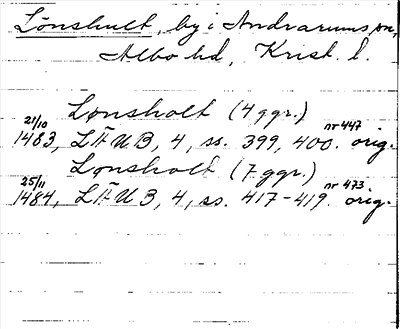 Lönshult, by i Andrarums sn,
Albo hd, Krist. l.
Lønsholt (4 ggr.)
21/10 1483, LÄUB, 4, ss. 399, 400. nr 447 orig.
Lønsholt (7 ggr.)
25/11 1484, LÄUB, 4, ss. 417-419. nr 473 orig.